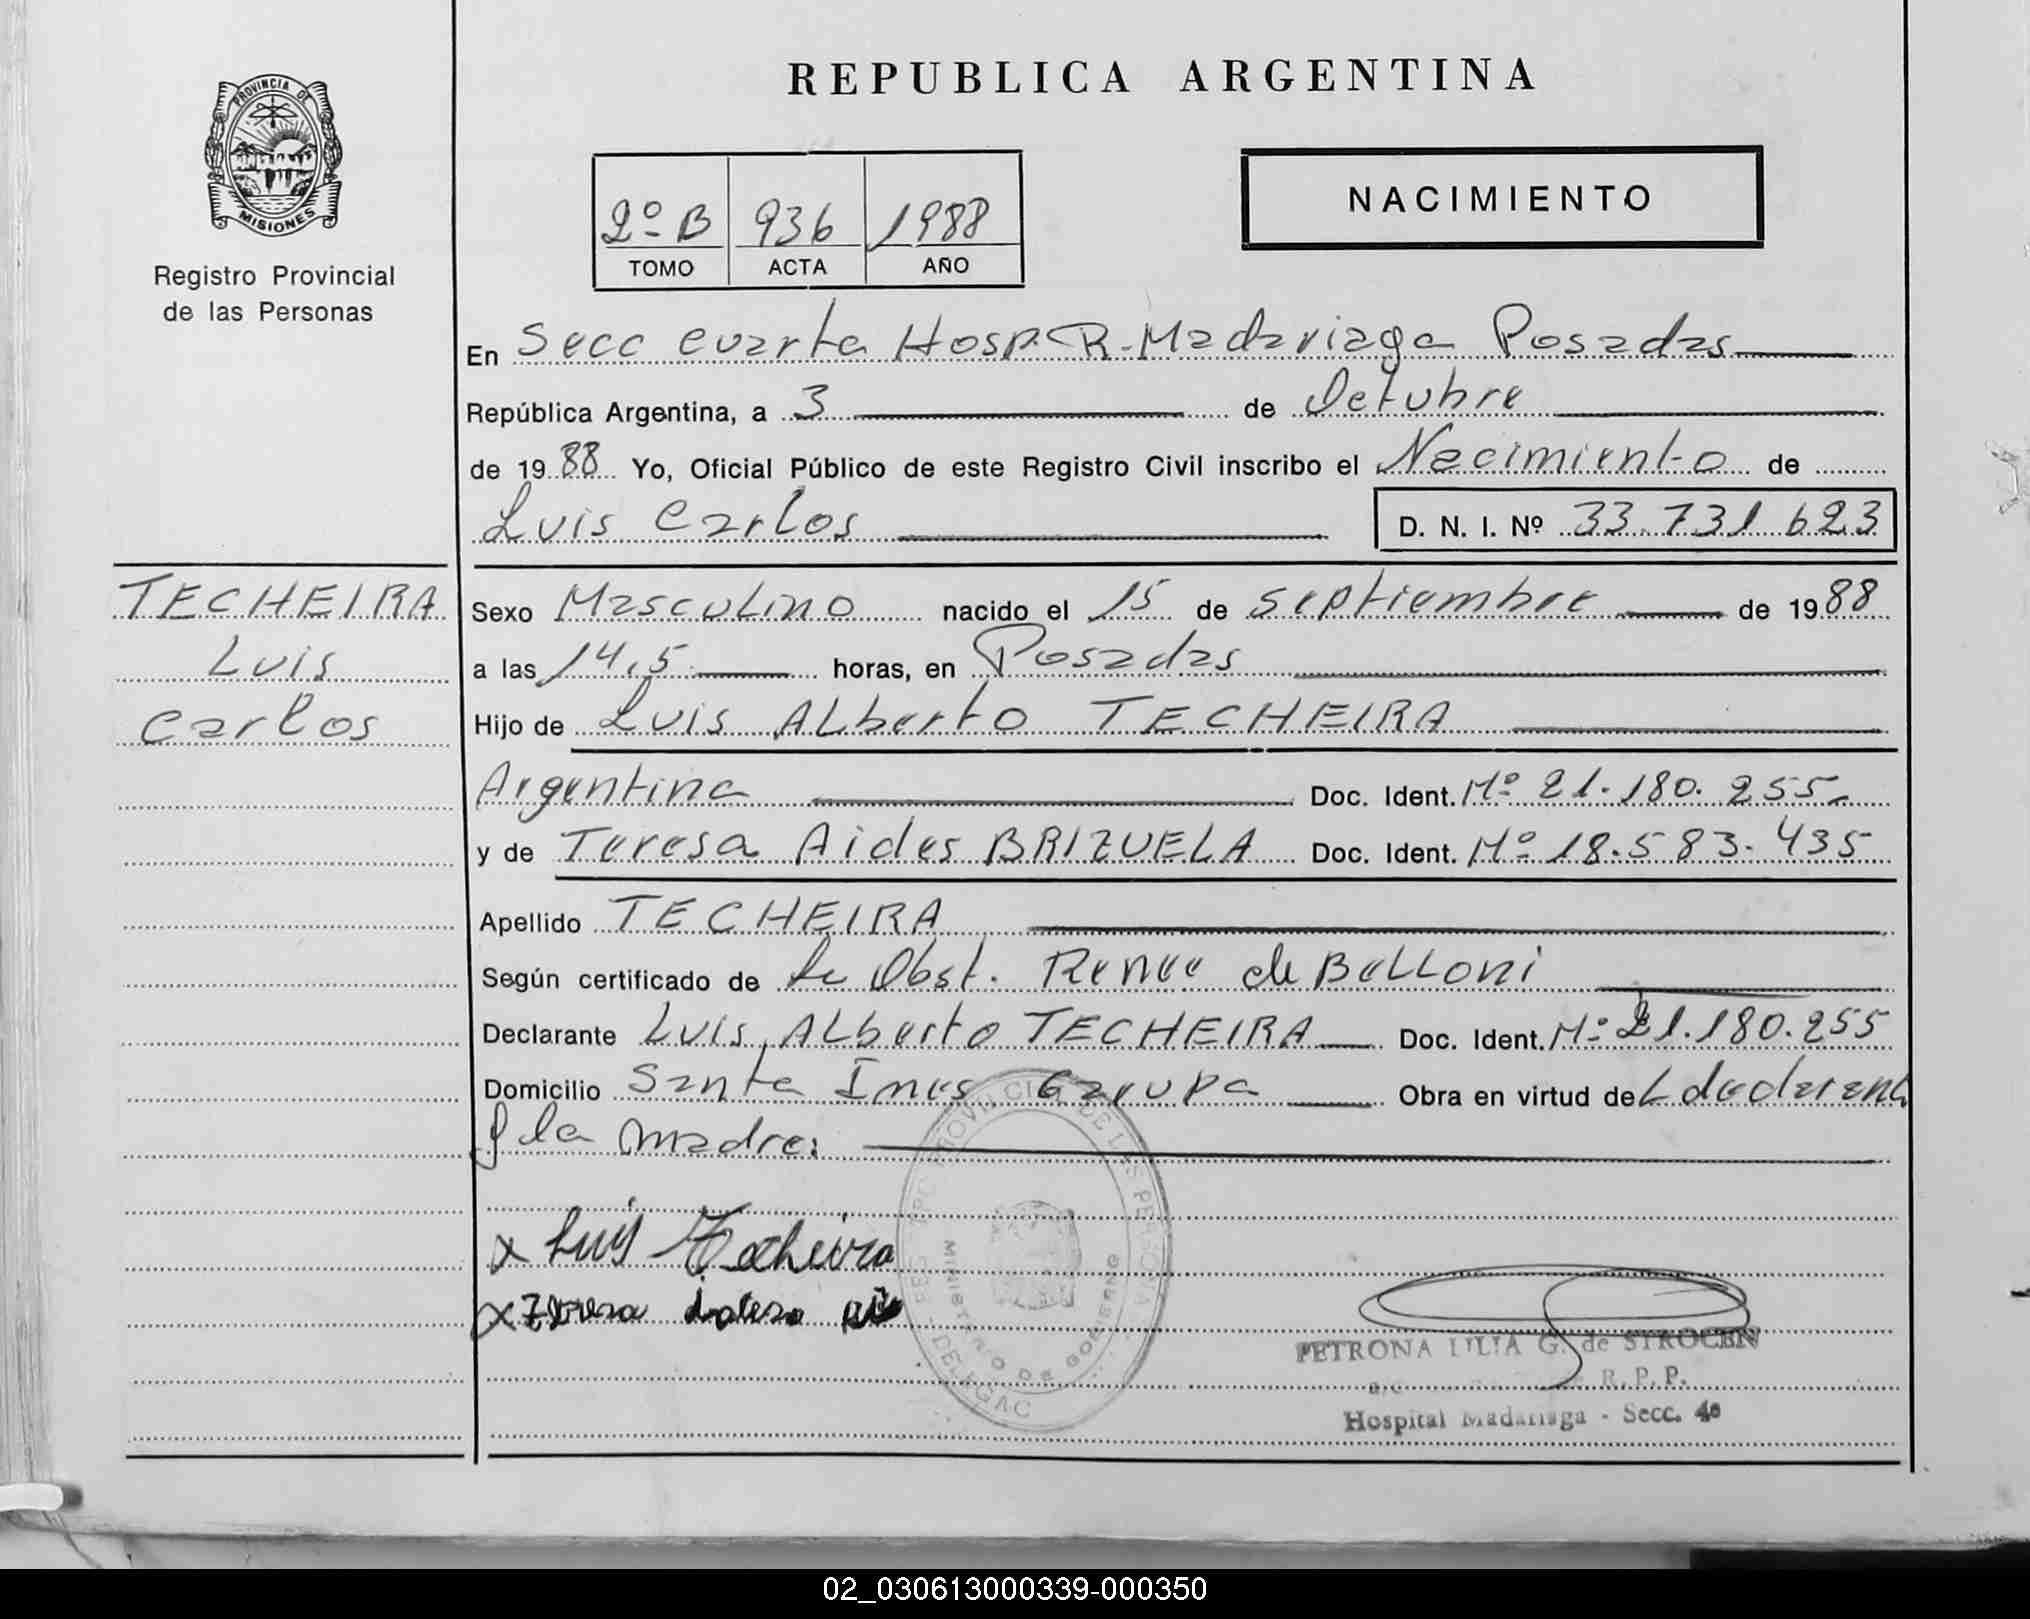 REPUBLICA ARGENTINA
PROVINCIA DE
MISIONES
Registro Provincial
de las Personas
NACIMIENTO
2º B 936 1988
TOMO ACTA AÑO
En Secc cuarta Hosp. R. Madariaga Posadas
República Argentina, a 3 de Octubre
de 1988 Yo, Oficial Público de este Registro Civil inscribo el Nacimiento de
Luis Carlos D. N. I. Nº 33.731.623
TECHEIRA
Luis
Carlos
Sexo Masculino nacido el 15 de septiembre de 1988
a las 14,5 horas, en Posadas
Hijo de Luis Alberto TECHEIRA
Argentina Doc. Ident. Mº 21.180.255-
y de Teresa Aides BRIZUELA Doc. Ident. Mº 18.583.435
Apellido TECHEIRA
Según certificado de la Obst. Renee de Belloni
Declarante Luis Alberto TECHEIRA Doc. Ident. Mº 21.180.255
Domicilio Santa Ines Garupa Obra en virtud de
la madre:
x Luis Techeira
x
MINISTERIO DE GOBIERNO
PETRONA LILIA G. de STROCEN
R. P. P.
Hospital Madariaga - Secc. 4a
02_030613000339-000350